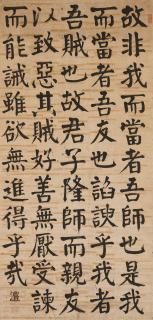 故非我而當者吾師也是我
而當者吾友也諂諛乎我者
吾賊也故君子隆師而親友
以致惡其賊好善無厭受諫
而能誡雖欲無進得乎哉